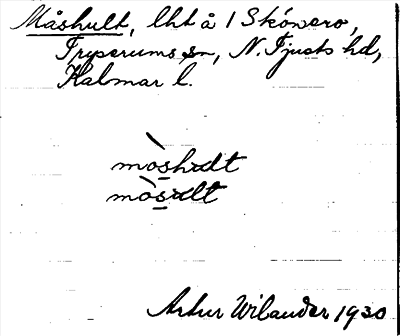 Måshult, lht å 1 Skönero,
Tryserums sn, N. Tjusts hd,
Kalmar l.
mòshult
mòsult
Artur Wilander 1930